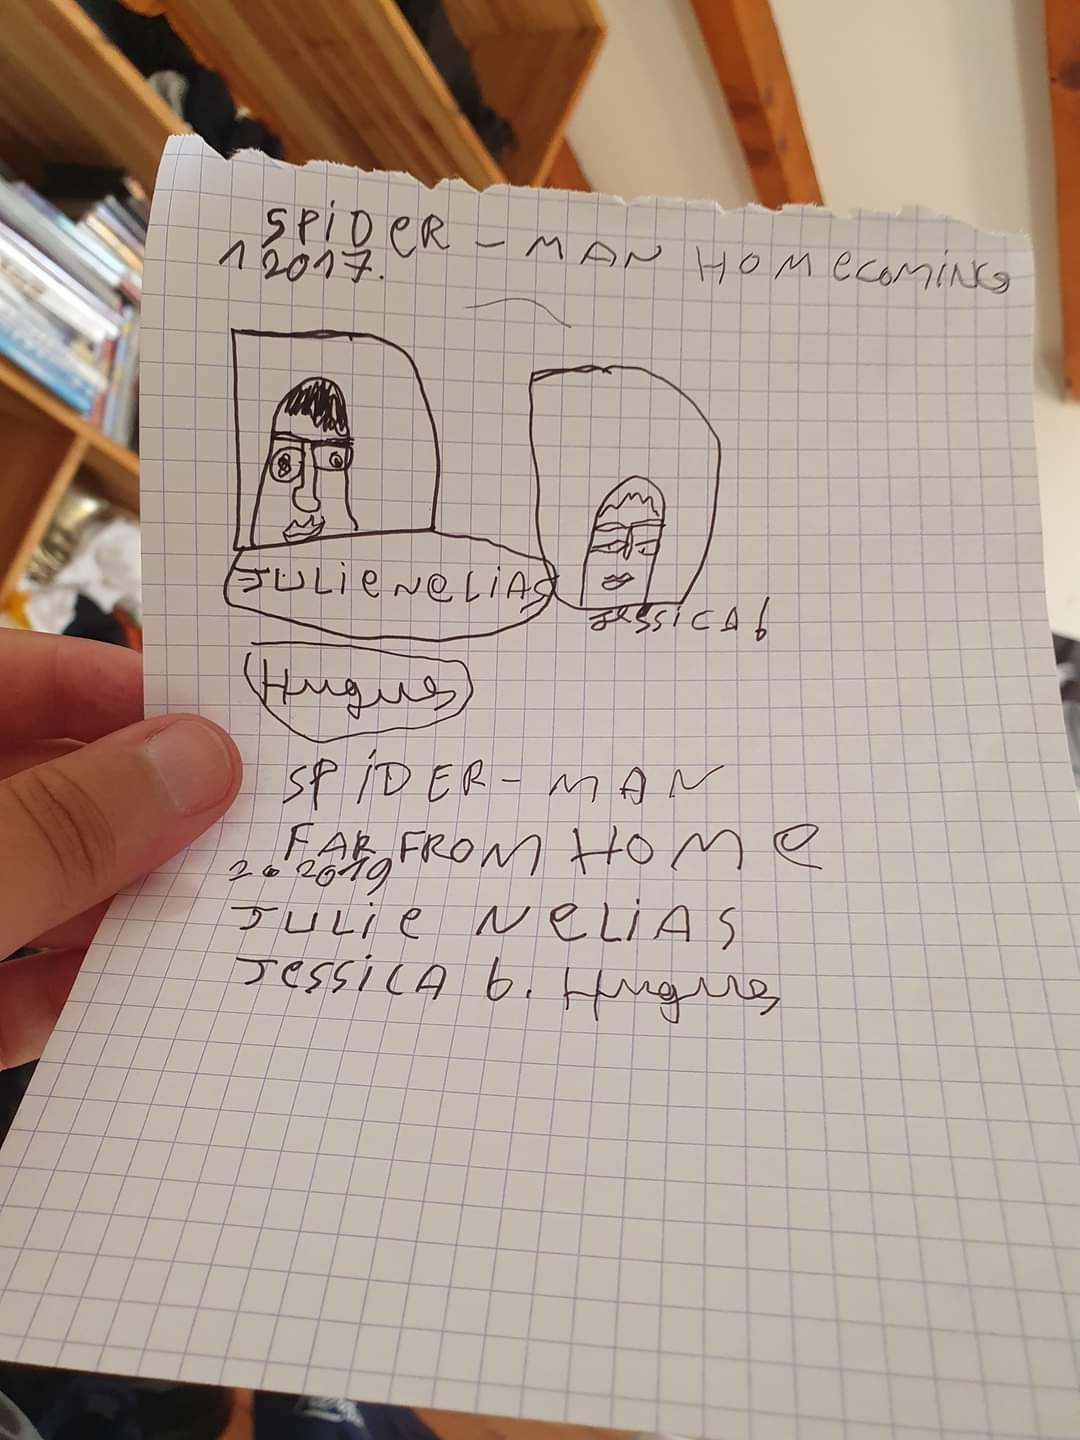 SPiDeR - MAN HOMecoMiNG
1 2017.
JULie NeLiAS
JessiCA b
Hugues
SPiDER - MAN
FAR FROM HOMe
2. 2019
JULie NeLiAS
JessiCA b. Hugues